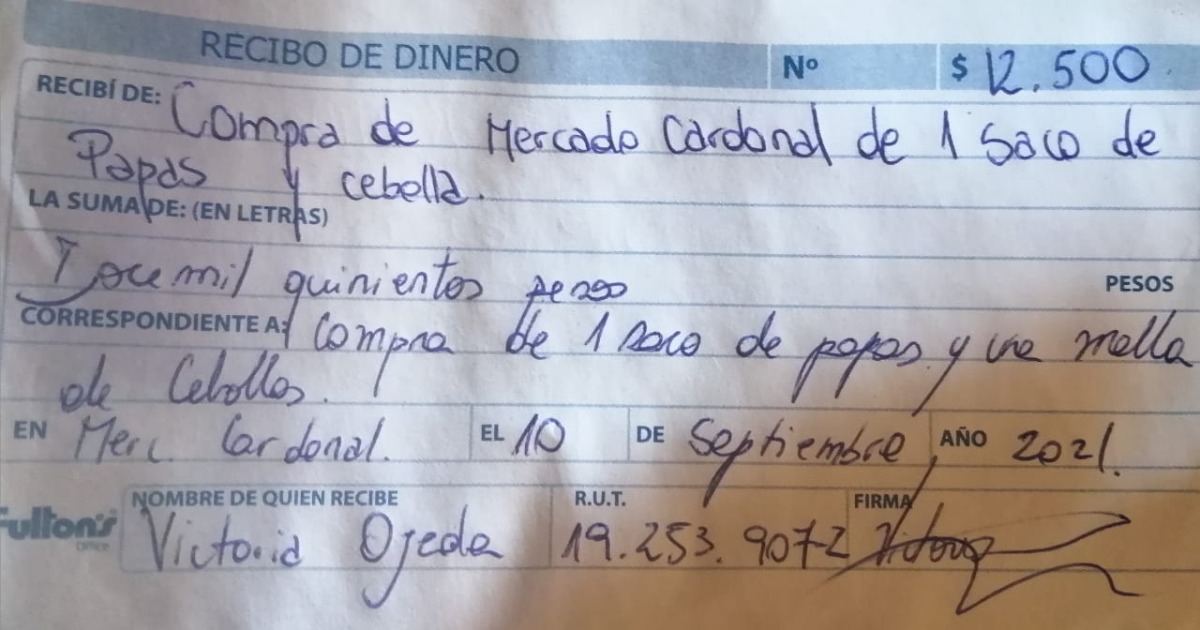 RECIBO DE DINERO Nº $ 12.500
RECIBÍ DE: Compra de Mercado Cardonal de 1 Saco de
Papas y cebolla.
LA SUMA DE: (EN LETRAS)
Doce mil quinientos pesos PESOS
CORRESPONDIENTE A: Compra de 1 saco de papas y una malla
de Cebollas.
EN Merc. Cardonal. EL 10 DE Septiembre AÑO 2021.
NOMBRE DE QUIEN RECIBE R.U.T. FIRMA
Fulton's Victoria Ojeda 19.253.907-2 Victoria
Office